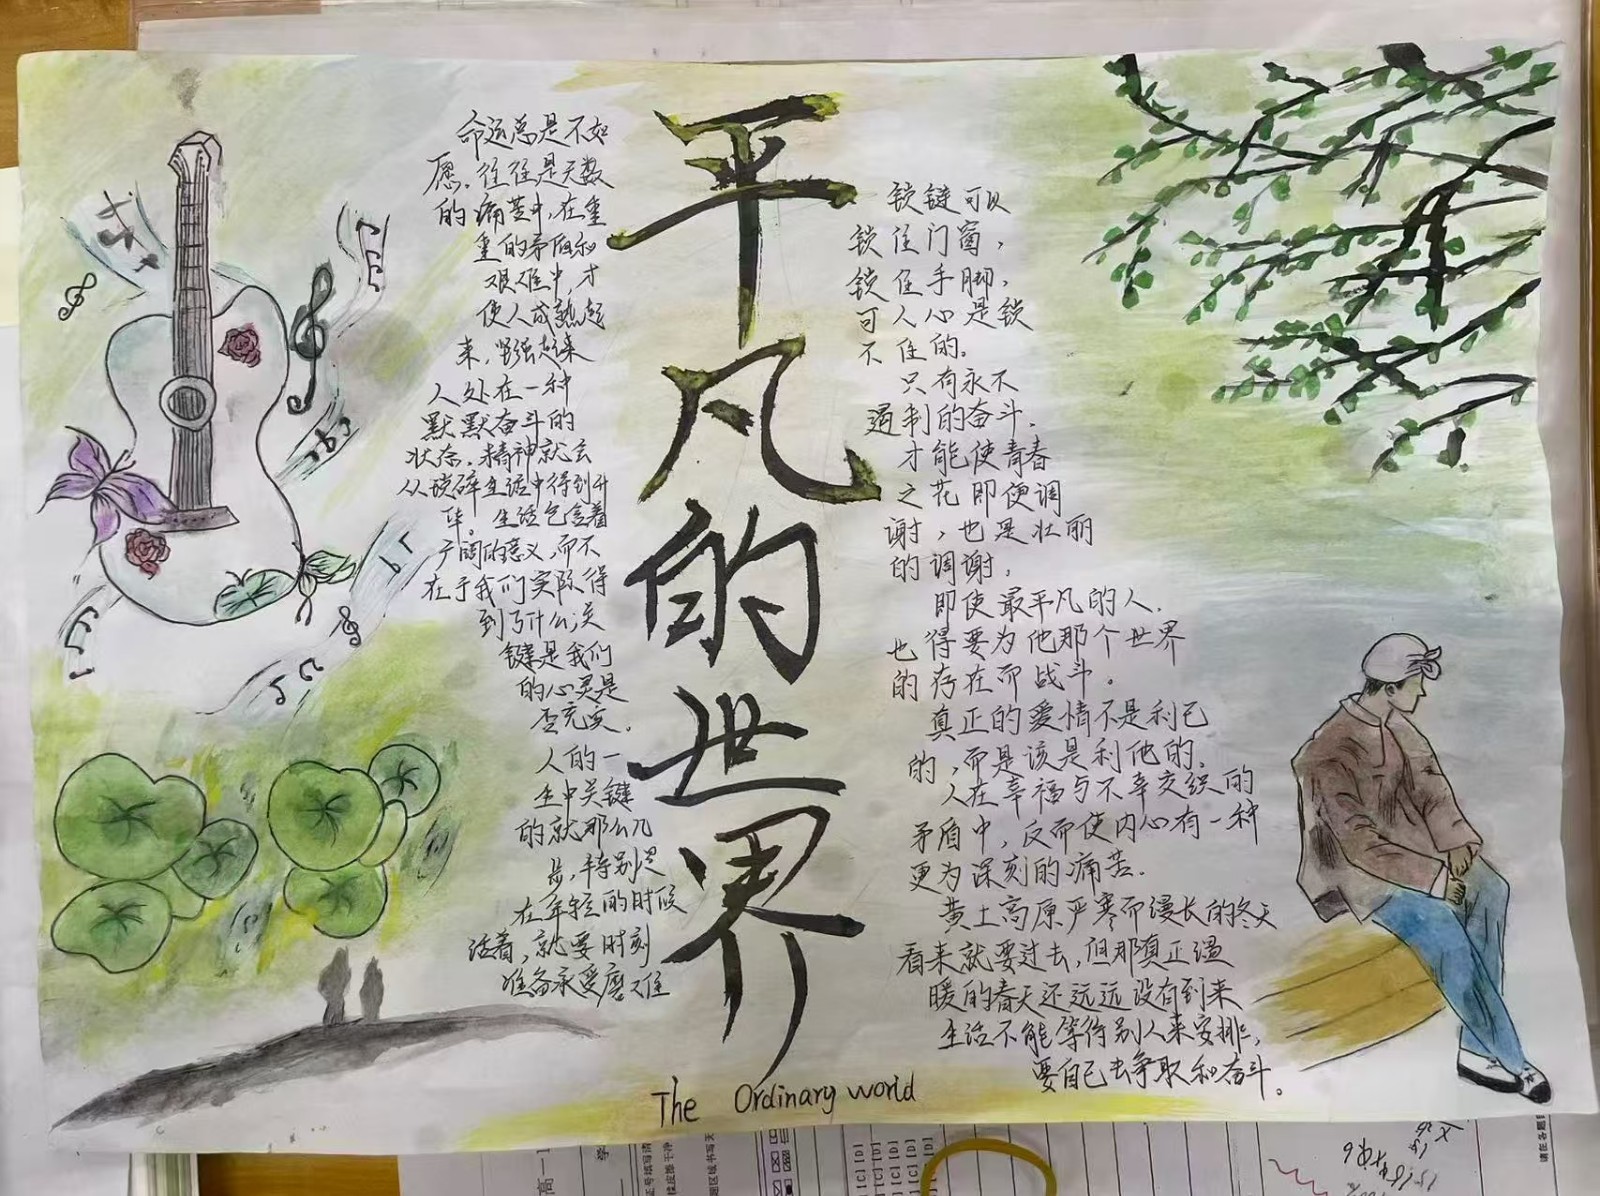 平凡的世界
命运总是不如
愿。往往是天数
的痛苦中,在重
重的矛盾和
艰难中,才
使人成熟起
来,坚强起来
人处在一种
默默奋斗的
状态,精神就会
从琐碎生活中得到升
华。生活包含着
广阔的意义,而不
在于我们实际得
到了什么;关
键是我们
的心灵是
否充实。
人的一
生中关键
的就那么几
步,特别是
在年轻的时候
活着,就要时刻
准备承受磨难
锁链可以
锁住门窗,
锁住手脚,
可人心是锁
不住的。
只有永不
遏制的奋斗,
才能使青春
之花即便调
谢,也是壮丽
的调谢,
即使最平凡的人,
也得要为他那个世界
的存在而战斗。
真正的爱情不是利己
的,而是该是利他的,
人在幸福与不幸交织的
矛盾中,反而使内心有一种
更为深刻的痛苦.
黄土高原严寒而漫长的冬天
看来就要过去,但那真正温
暖的春天还远远没有到来
生活不能等待别人来安排,
要自己去争取和奋斗。
The Ordinary world
高一1